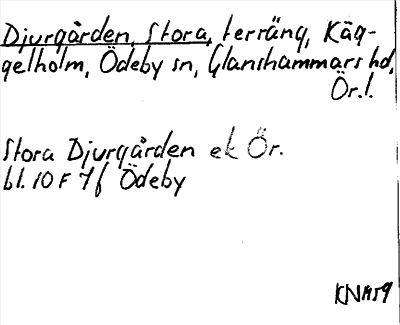 Djurgården, Stora, terräng, Käg-
gelholm, Ödeby sn, Glanshammars hd,
Ör.l.
Stora Djurgården ek Ör.
bl. 10 F 7 f Ödeby